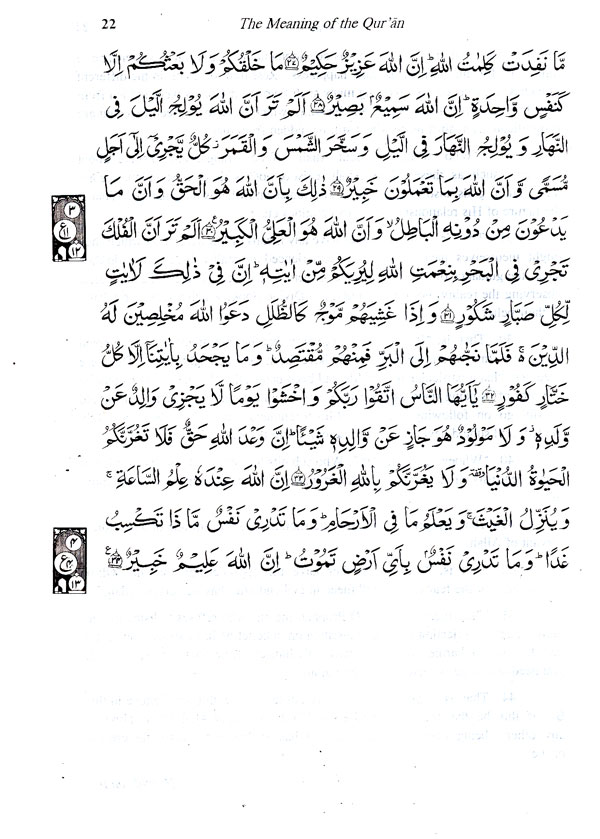 22 The Meaning of the Qur'ān
مَّا نَفِدَتْ كَلِمٰتُ اللّٰهِ ؕ اِنَّ اللّٰهَ عَزِيْزٌ حَكِيْمٌ ﴿۲۷﴾ مَا خَلْقُكُمْ وَ لَا بَعْثُكُمْ اِلَّا
كَنَفْسٍ وَّاحِدَةٍ ؕ اِنَّ اللّٰهَ سَمِيْعٌۢ بَصِيْرٌ ﴿۲۸﴾ اَلَمْ تَرَ اَنَّ اللّٰهَ يُوْلِجُ الَّيْلَ فِى
النَّهَارِ وَ يُوْلِجُ النَّهَارَ فِى الَّيْلِ وَ سَخَّرَ الشَّمْسَ وَ الْقَمَرَ ؗ كُلٌّ يَّجْرِىْۤ اِلٰۤى اَجَلٍ
مُّسَمًّى وَّ اَنَّ اللّٰهَ بِمَا تَعْمَلُوْنَ خَبِيْرٌ ﴿۲۹﴾ ذٰلِكَ بِاَنَّ اللّٰهَ هُوَ الْحَقُّ وَ اَنَّ مَا
يَدْعُوْنَ مِنْ دُوْنِهِ الْبَاطِلُ ۙ وَ اَنَّ اللّٰهَ هُوَ الْعَلِىُّ الْكَبِيْرُ ﴿۳۰﴾ اَلَمْ تَرَ اَنَّ الْفُلْكَ
تَجْرِىْ فِى الْبَحْرِ بِنِعْمَتِ اللّٰهِ لِيُرِيَكُمْ مِّنْ اٰيٰتِهٖ ؕ اِنَّ فِىْ ذٰلِكَ لَاٰيٰتٍ
لِّكُلِّ صَبَّارٍ شَكُوْرٍ ﴿۳۱﴾ وَ اِذَا غَشِيَهُمْ مَّوْجٌ كَالظُّلَلِ دَعَوُا اللّٰهَ مُخْلِصِيْنَ لَهُ
الدِّيْنَ ۚ فَلَمَّا نَجّٰىهُمْ اِلَى الْبَرِّ فَمِنْهُمْ مُّقْتَصِدٌ ؕ وَ مَا يَجْحَدُ بِاٰيٰتِنَاۤ اِلَّا كُلُّ
خَتَّارٍ كَفُوْرٍ ﴿۳۲﴾ يٰۤاَيُّهَا النَّاسُ اتَّقُوْا رَبَّكُمْ وَ اخْشَوْا يَوْمًا لَّا يَجْزِىْ وَالِدٌ عَنْ
وَّلَدِهٖ ؗ وَ لَا مَوْلُوْدٌ هُوَ جَازٍ عَنْ وَّالِدِهٖ شَيْئًا ؕ اِنَّ وَعْدَ اللّٰهِ حَقٌّ فَلَا تَغُرَّنَّكُمُ
الْحَيٰوةُ الدُّنْيَا ۥ وَ لَا يَغُرَّنَّكُمْ بِاللّٰهِ الْغَرُوْرُ ﴿۳۳﴾ اِنَّ اللّٰهَ عِنْدَهٗ عِلْمُ السَّاعَةِ ۚ
وَ يُنَزِّلُ الْغَيْثَ ۚ وَ يَعْلَمُ مَا فِى الْاَرْحَامِ ؕ وَ مَا تَدْرِىْ نَفْسٌ مَّا ذَا تَكْسِبُ
غَدًا ؕ وَ مَا تَدْرِىْ نَفْسٌۢ بِاَىِّ اَرْضٍ تَمُوْتُ ؕ اِنَّ اللّٰهَ عَلِيْمٌ خَبِيْرٌ ﴿۳۴﴾